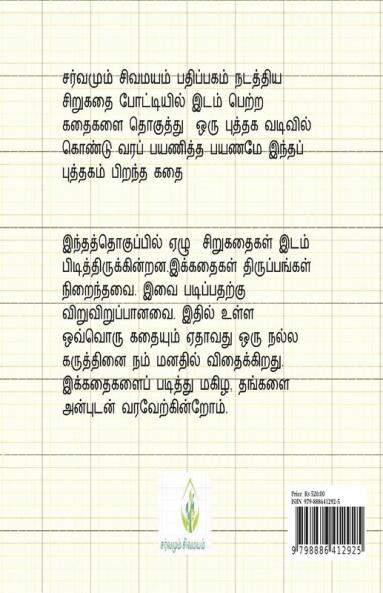 சர்வமும் சிவமயம் பதிப்பகம் நடத்திய
சிறுகதை போட்டியில் இடம் பெற்ற
கதைகளை தொகுத்து ஒரு புத்தக வடிவில்
கொண்டு வரப் பயணித்த பயணமே இந்தப்
புத்தகம் பிறந்த கதை
இந்தத்தொகுப்பில் ஏழு சிறுகதைகள் இடம்
பிடித்திருக்கின்றன.இக்கதைகள் திருப்பங்கள்
நிறைந்தவை. இவை படிப்பதற்கு
விறுவிறுப்பானவை. இதில் உள்ள
ஒவ்வொரு கதையும் ஏதாவது ஒரு நல்ல
கருத்தினை நம் மனதில் விதைக்கிறது.
இக்கதைகளைப் படித்து மகிழ, தங்களை
அன்புடன் வரவேற்கின்றோம்.
சர்வமும் சிவமயம்
Price Rs 520.00
ISBN 979-888641292-5
9 798886 412925